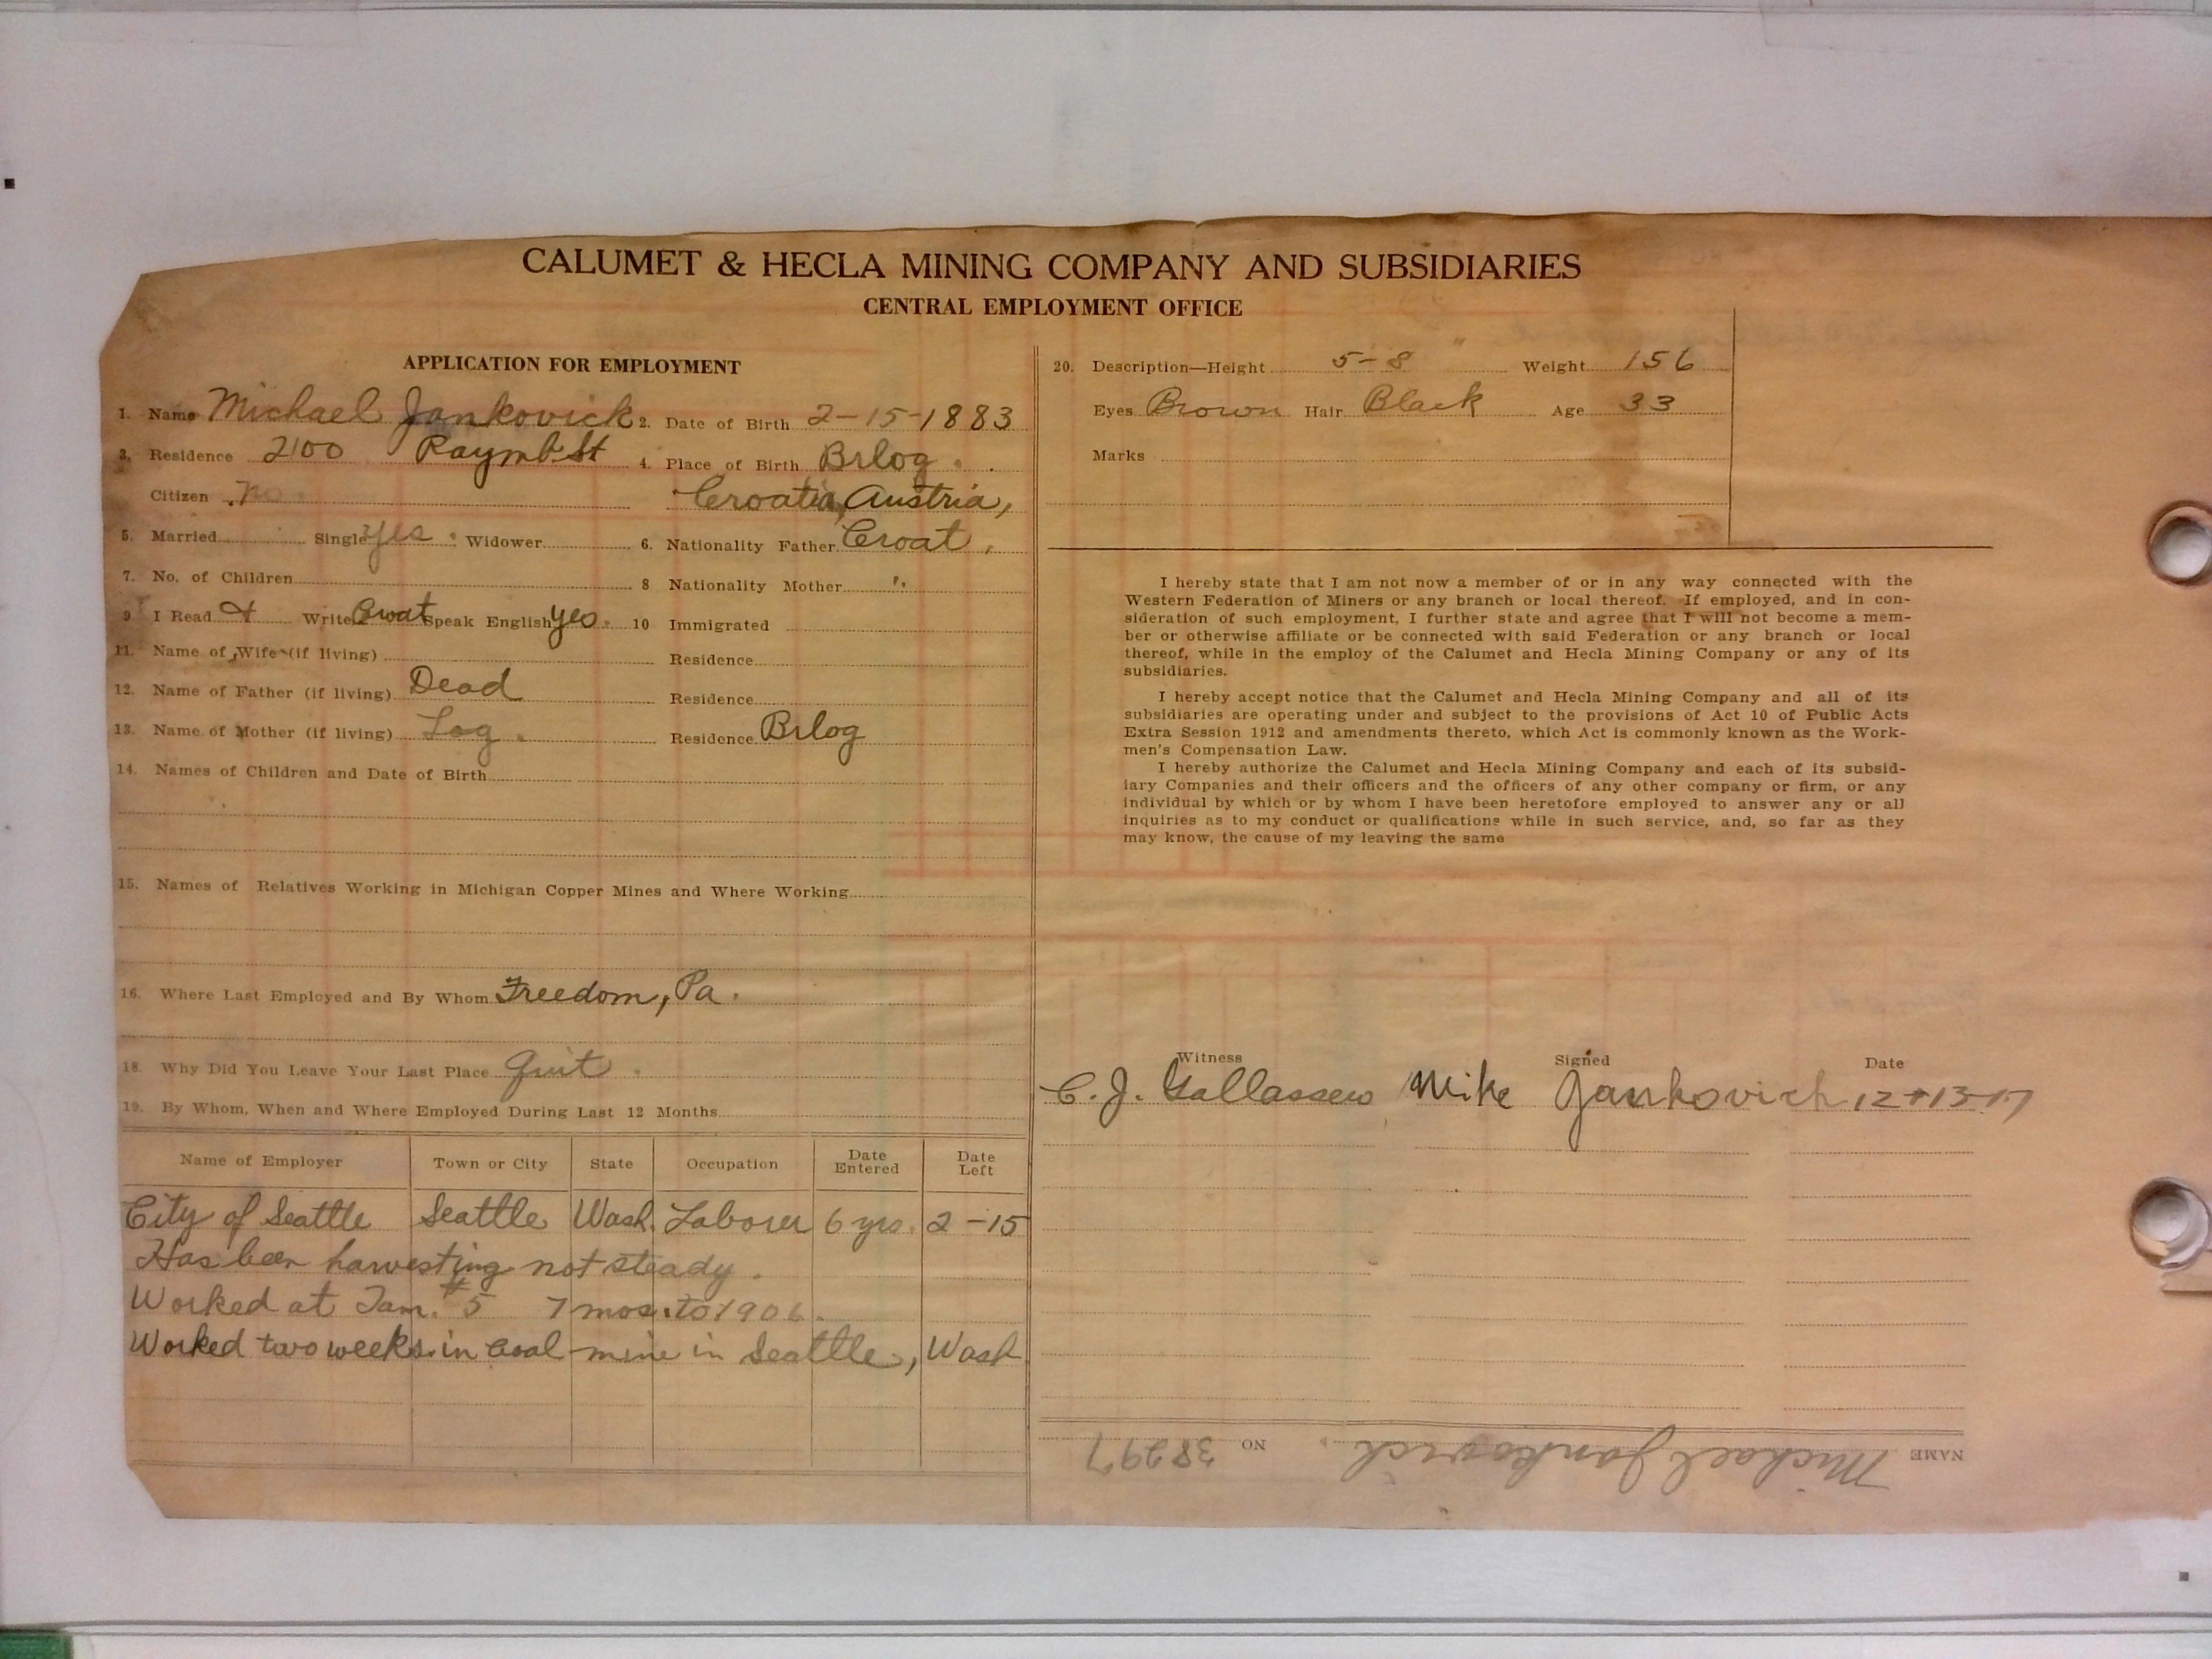 CALUMET & HECLA MINING COMPANY AND SUBSIDIARIES
CENTRAL EMPLOYMENT OFFICE
APPLICATION FOR EMPLOYMENT
1. Name Michael Jankovick 2. Date of Birth 2-15-1883
3. Residence 2100 Raymb. St 4. Place of Birth Brlog.
Citizen no Croatia, Austria,
5. Married Single yes. Widower 6. Nationality Father Croat.
7. No. of Children 8 Nationality Mother "
9 I Read & Write Croat Speak English yes. 10 Immigrated
11. Name of Wife (if living) Residence
12. Name of Father (if living) Dead Residence
13. Name of Mother (if living) Residence Brlog
14. Names of Children and Date of Birth
15. Names of Relatives Working in Michigan Copper Mines and Where Working
16. Where Last Employed and By Whom Freedom, Pa.
18. Why Did You Leave Your Last Place Quit.
19. By Whom, When and Where Employed During Last 12 Months
Name of Employer Town or City State Occupation Date Entered Date Left
City of Seattle Seattle Wash. Laborer 6 yrs. 2-15
Has been harvesting not steady.
Worked at Tam. #5 7 mos. to 1906.
Worked two weeks in coal mine in Seattle, Wash
20. Description—Height 5-8" Weight 156
Eyes Brown Hair Black Age 33
Marks
I hereby state that I am not now a member of or in any way connected with the
Western Federation of Miners or any branch or local thereof. If employed, and in con-
sideration of such employment, I further state and agree that I will not become a mem-
ber or otherwise affiliate or be connected with said Federation or any branch or local
thereof, while in the employ of the Calumet and Hecla Mining Company or any of its
subsidiaries.
I hereby accept notice that the Calumet and Hecla Mining Company and all of its
subsidiaries are operating under and subject to the provisions of Act 10 of Public Acts
Extra Session 1912 and amendments thereto, which Act is commonly known as the Work-
men's Compensation Law.
I hereby authorize the Calumet and Hecla Mining Company and each of its subsid-
iary Companies and their officers and the officers of any other company or firm, or any
individual by which or by whom I have been heretofore employed to answer any or all
inquiries as to my conduct or qualifications while in such service, and, so far as they
may know, the cause of my leaving the same
Witness Signed Date
C. J. Mike Jankovich 12-13-17
NAME Michael Jankovich. NO 38297